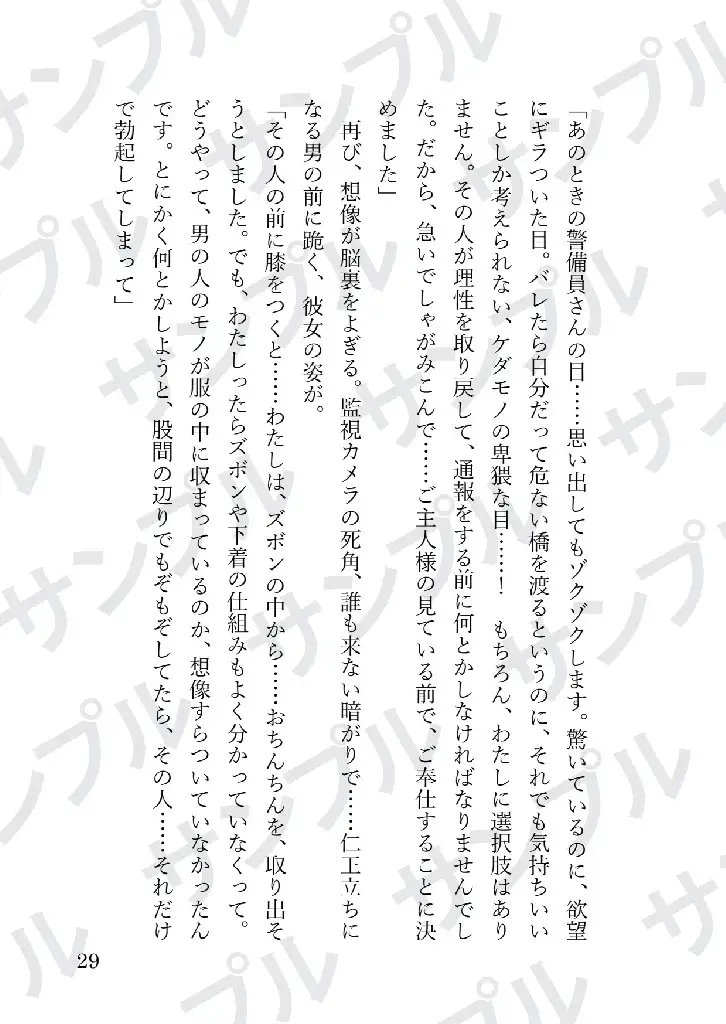 「あのときの警備員さんの目……思い出してもゾクゾクします。驚いているのに、欲望
にギラついた目。バレたら自分だって危ない橋を渡るというのに、それでも気持ちいい
ことしか考えられない、ケダモノの卑猥な目……！　もちろん、わたしに選択肢はあり
ません。その人が理性を取り戻して、通報をする前に何とかしなければなりませんでし
た。だから、急いでしゃがみこんで……ご主人様の見ている前で、ご奉仕することに決
めました」
再び、想像が脳裏をよぎる。監視カメラの死角、誰も来ない暗がりで……仁王立ちに
なる男の前に跪く、彼女の姿が。
「その人の前に膝をつくと……わたしは、ズボンの中から……おちんちんを、取り出そ
うとしました。でも、わたしったらズボンや下着の仕組みもよく分かっていなくって。
どうやって、男の人のモノが服の中に収まっているのか、想像すらついていなかったん
です。とにかく何とかしようと、股間の辺りでもぞもぞしてたら、その人……それだけ
で勃起してしまって」
29
サンプル